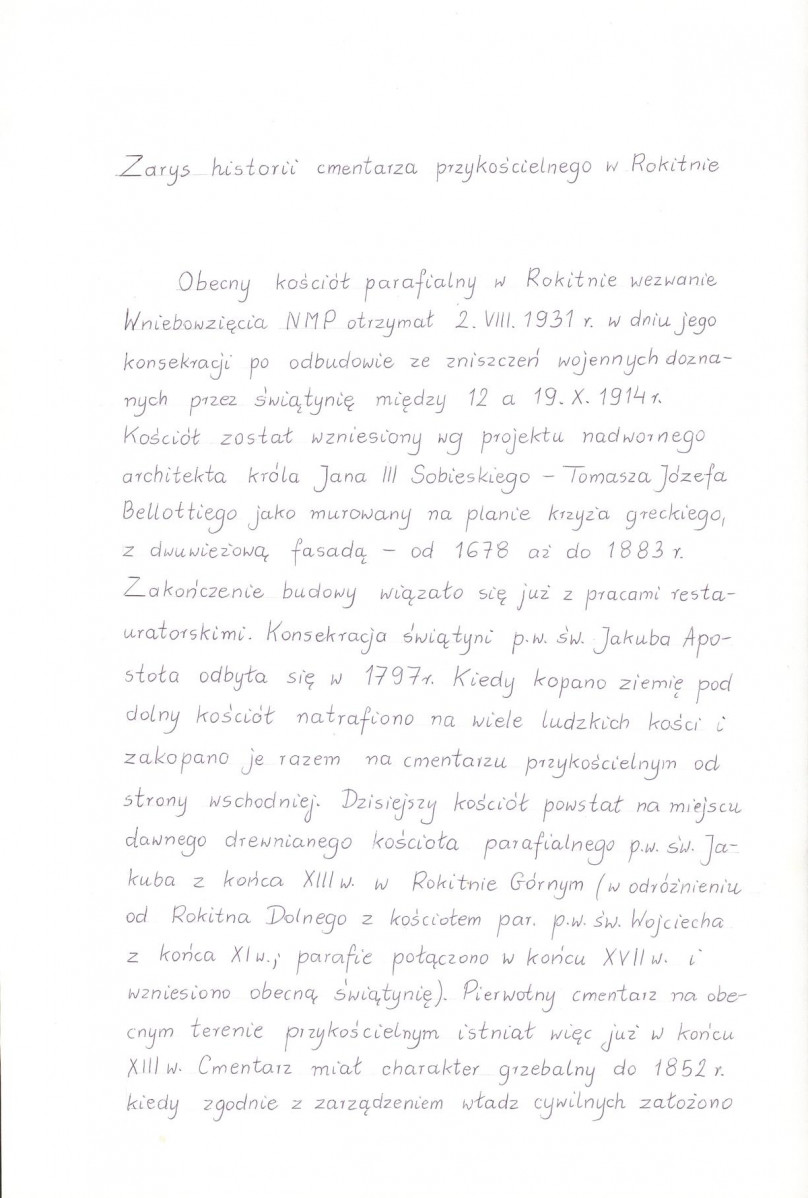 Zarys historii cmentarza przykościelnego w Rokitnie
Obecny kościół parafialny w Rokitnie wezwanie
Wniebowzięcia NMP otrzymał 2. VIII. 1931 r. w dniu jego
konsekracji po odbudowie ze zniszczeń wojennych dozna-
nych przez świątynię między 12 a 19. X. 1914 r.
Kościół został wzniesiony wg projektu nadwornego
architekta króla Jana III Sobieskiego – Tomasza Józefa
Bellottiego jako murowany na planie krzyża greckiego,
z dwuwieżową fasadą – od 1678 aż do 1883 r.
Zakończenie budowy wiązało się już z pracami resta-
uratorskimi. Konsekracja świątyni p.w. św. Jakuba Apo-
stoła odbyła się w 1797 r. Kiedy kopano ziemię pod
dolny kościół natrafiono na wiele ludzkich kości i
zakopano je razem na cmentarzu przykościelnym od
strony wschodniej. Dzisiejszy kościół powstał na miejscu
dawnego drewnianego kościoła parafialnego p.w. św. Ja-
kuba z końca XIII w. w Rokitnie Górnym (w odróżnieniu
od Rokitna Dolnego z kościołem par. p.w. św. Wojciecha
z końca XI w.; parafie połączono w końcu XVII w. i
wzniesiono obecną świątynię). Pierwotny cmentarz na obe-
cnym terenie przykościelnym istniał więc już w końcu
XIII w. Cmentarz miał charakter grzebalny do 1852 r.
kiedy zgodnie z zarządzeniem władz cywilnych założono